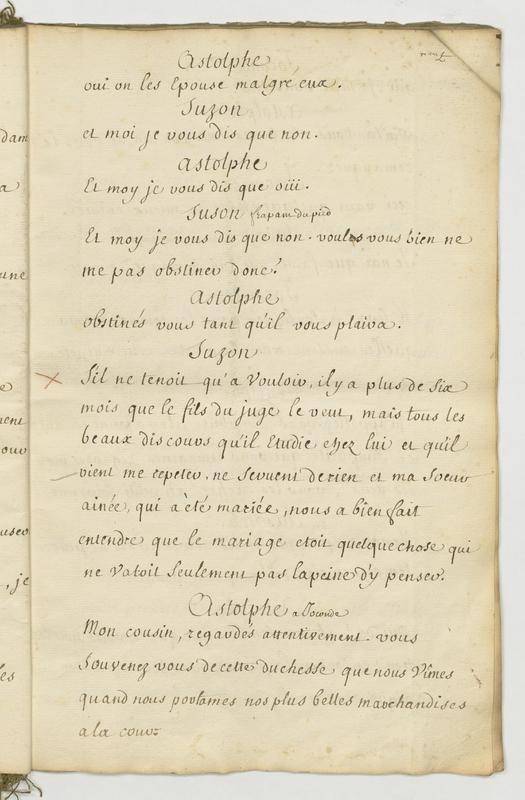 dam
a
une
e
ment
ouv
useo
, je
es
neuf
Astolphe
oui on les Epouse malgre eux.
Suzon
et moi je vous dis que non.
Astolphe
Et moy je vous dis que oüi.
Suson frapant du pied
Et moy je vous dis que non. voulés vous bien ne
me pas obstiner donc?
Astolphe
obstinés vous tant qu'il vous plaira.
Suzon
S'il ne tenoit qu'a vouloir, il y a plus de six
mois que le fils du juge le veut, mais tous les
beaux discours qu'il Etudie chez lui et qu'il
vient me repeter, ne servent de rien et ma soeur
ainée, qui a été mariée, nous a bien fait
entendre que le mariage etoit quelque chose qui
ne valoit seulement pas la peine d'y penser.
Astolphe a Joconde
Mon cousin, regardés attentivement. vous
Souvenez vous de cette duchesse que nous vîmes
quand nous portames nos plus belles marchandises
a la cour.